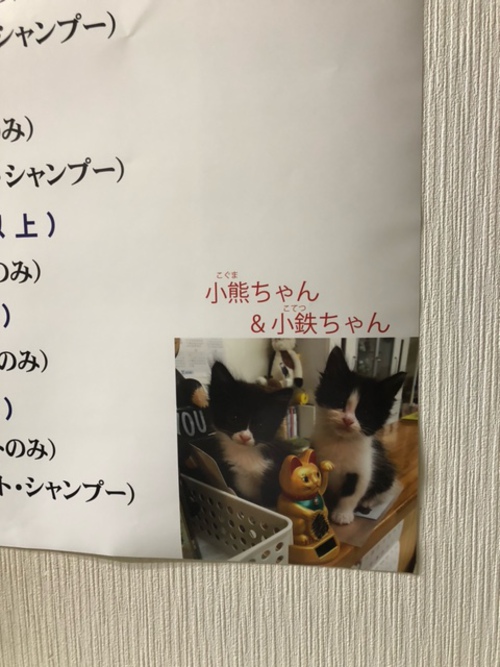 シャンプー）
み）
シャンプー）
以上）
のみ）
）
こぐま
小熊ちゃん
こてつ
＆小鉄ちゃん
のみ）
）
のみ）
ト・シャンプー）
YOU